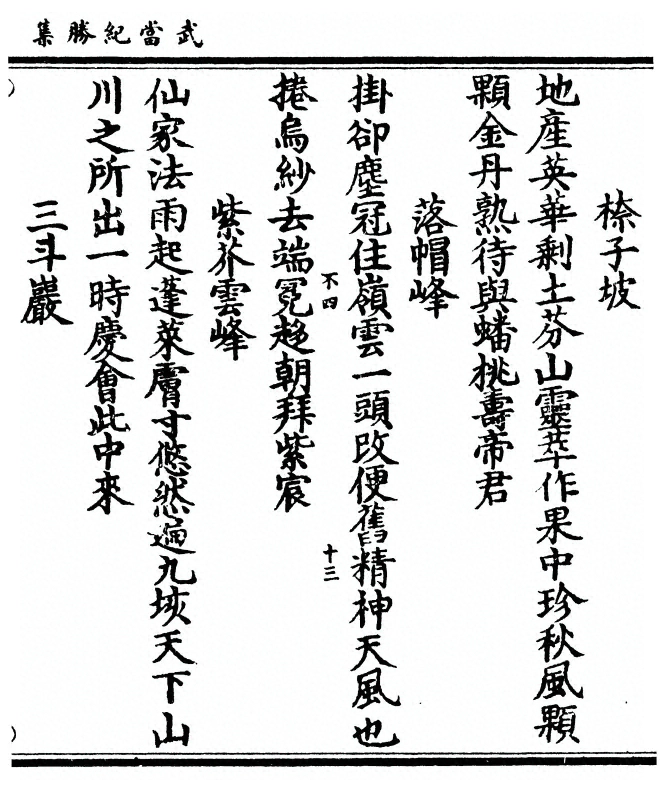 武當紀勝集
榛子坡
地產英華剩土芬山靈萃作果中珍秋風顆
顆金丹熟待與蟠桃壽帝君
落帽峰
掛卻塵冠住嶺雲一頭改便舊精神天風也
不四
十三
捲烏紗去端冕趍朝拜紫宸
紫芥雲峰
仙家法雨起蓬萊膚寸悠然遍九垓天下山
川之所出一時慶會此中來
三斗巖